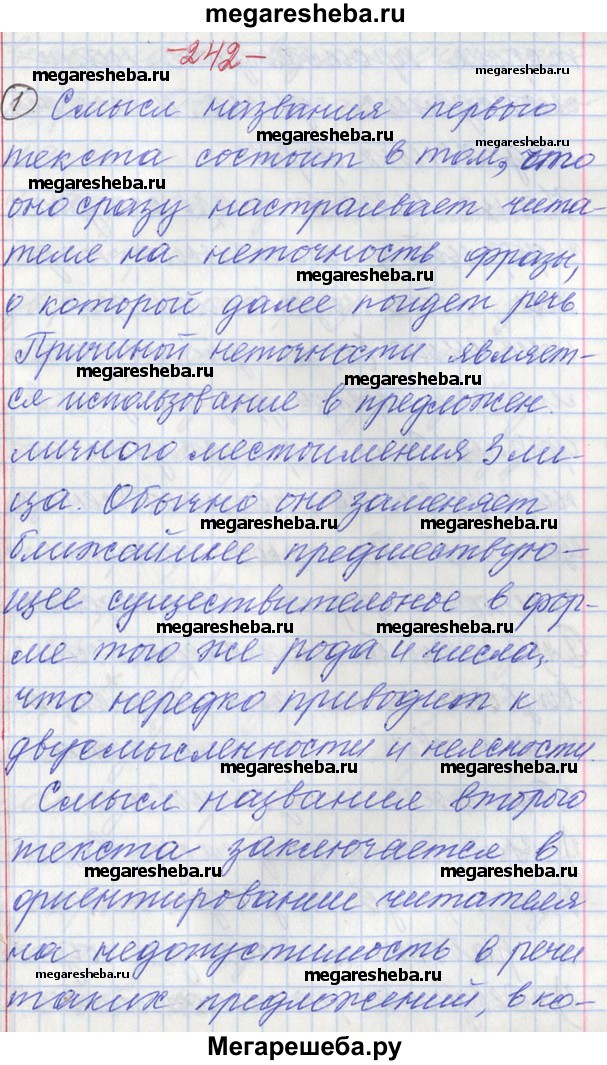 megaresheba.ru
-242-
megaresheba.ru
megaresheba.ru
1 Смысл названия первого
megaresheba.ru
megaresheba.ru
текста состоит в том, что
megaresheba.ru
оно сразу настраивает чита-
теля на неточность фразы,
megaresheba.ru
о которой далее пойдет речь.
Причиной неточности являет-
megaresheba.ru
megaresheba.ru
ся использование в предложен.
личного местоимения 3 ли-
ца. Обычно оно заменяет
megaresheba.ru
megaresheba.ru
ближайшее предшествую-
щее существительное в фор-
megaresheba.ru
megaresheba.ru
ме того же рода и числа,
что нередко приводит к
двусмысленности и неясности.
megaresheba.ru
megaresheba.ru
Смысл названия второго
текста заключается в
megaresheba.ru
megaresheba.ru
ориентировании читателя
на недопустимость в речи
megaresheba.ru
megaresheba.ru
megaresheba.ru
таких предложений, в ко-
Мегарешеба.ру